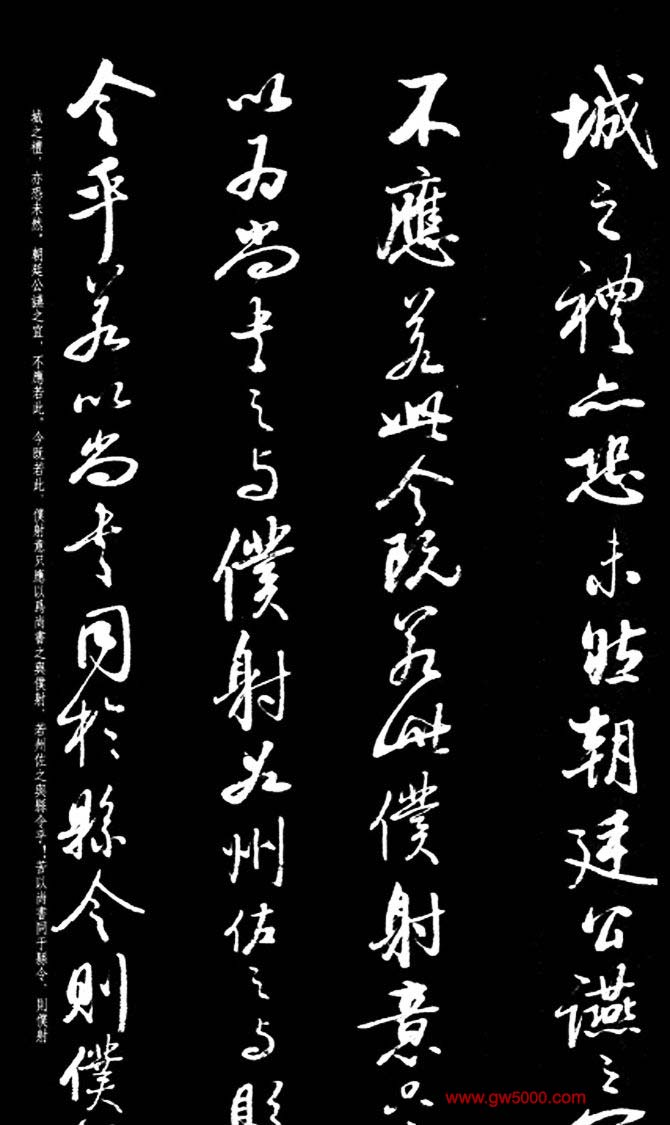 城之禮亦恐未然朝廷公讌之
不應若此今既若此僕射意只
以为尚书之与僕射如州佐之与縣
令乎若以尚书同於縣令則僕
城之禮，亦恐未然。朝廷公讌之宜，不應若此。今既若此，僕射意只應以爲尚書之與僕射，若州佐之與縣令乎！若以尚書同于縣令，則僕射
www.gw5000.com